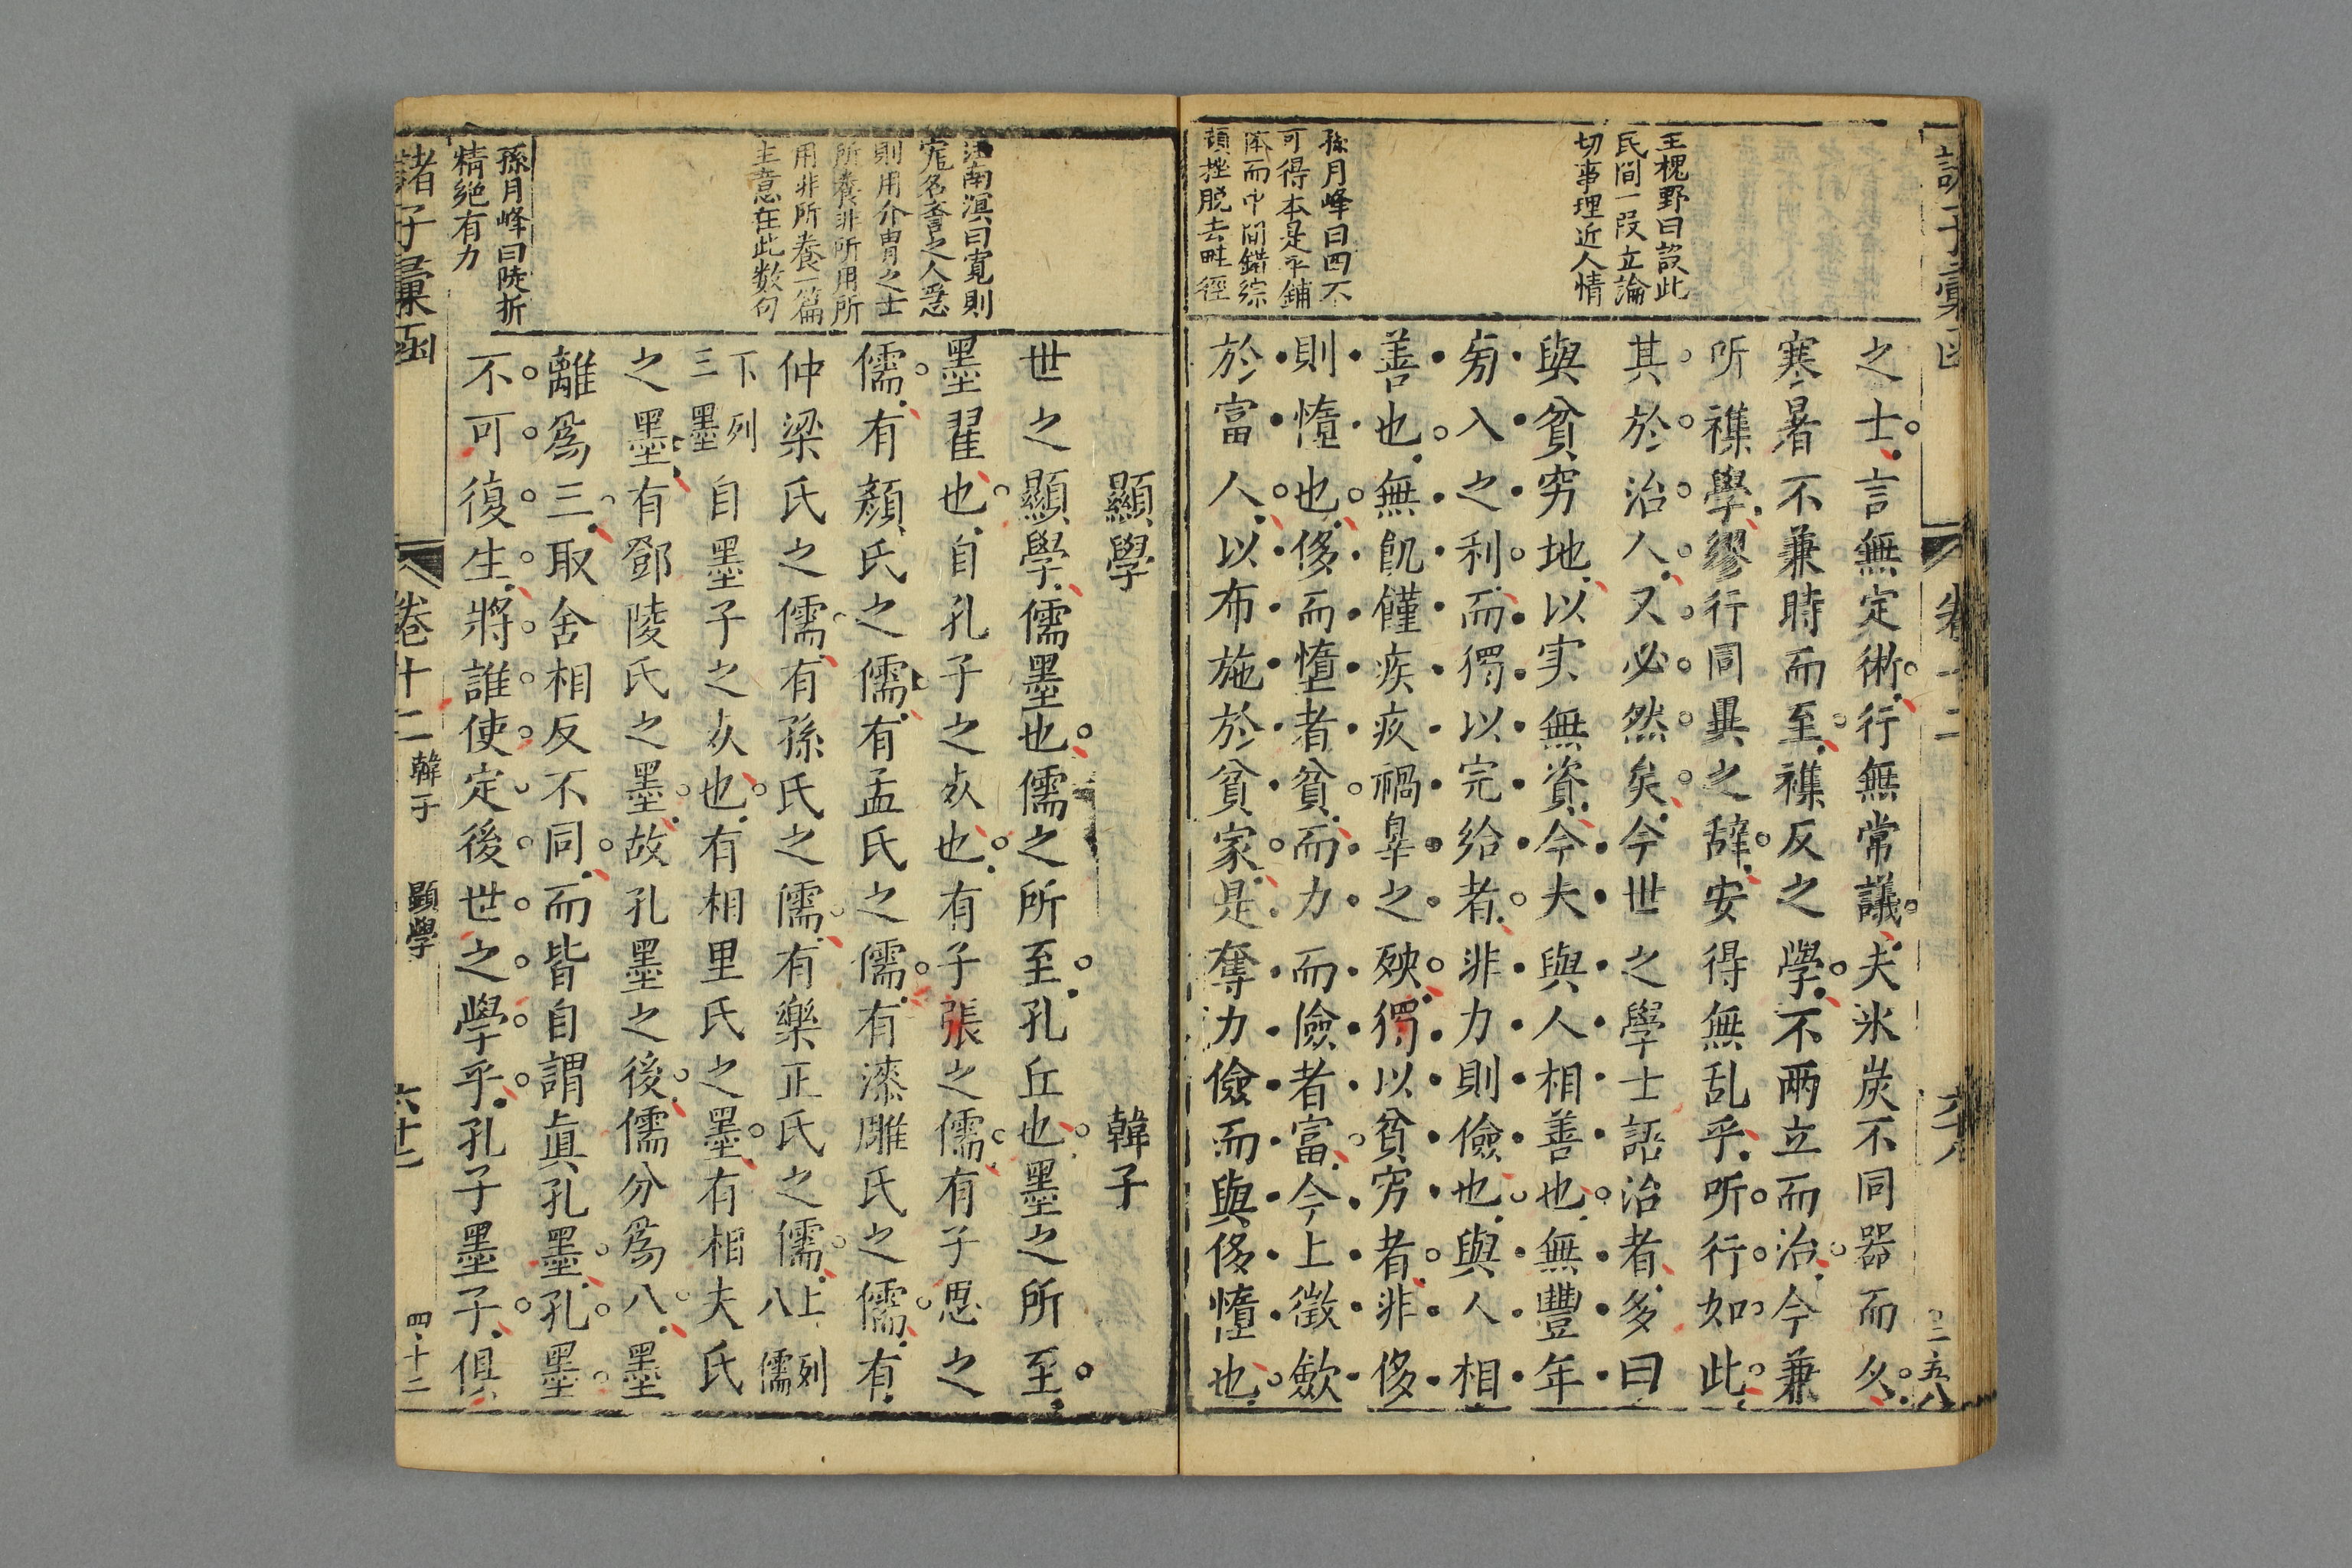 王槐野曰設此
民間一段立論
切事理近人情
孫月峰曰四不
可得本是平鋪
体而中間錯綜
頓挫脱去畦徑
之士言無定術行無常議夫氷炭不同器而久
寒暑不兼時而至襍反之學不兩立而治今兼
听襍學繆行同異之辞安得無乱乎听行如此
其於治人又必然矣今世之學士語治者多曰
與貧穷地以実無資今夫與人相善也無豐年
旁入之利而獨以完给者非力則儉也與人相
善也無飢饉疾疚禍辠之殃獨以貧穷者非侈
則惰也侈而惰者貧而力而儉者富今上徵歛
於富人以布施於貧家是奪力儉而與侈惰也
南溟曰寬則
寵名譽之人急
則用介胄之士
所養非所用所
用非所養一篇
主意在此数句
孫月峰曰陡折
精絶有力
顯學 韓子
世之顯學儒墨也儒之所至孔丘也墨之所至
墨翟也自孔子之死也有子張之儒有子思之
儒有顏氏之儒有孟氏之儒有漆雕氏之儒有
仲梁氏之儒有孫氏之儒有樂正氏之儒上列八儒
下列三墨自墨子之死也有相里氏之墨有相夫氏
之墨有鄧陵氏之墨故孔墨之後儒分爲八墨
離爲三取舍相反不同而皆自謂眞孔墨孔墨
不可復生將誰使定後世之學乎孔子墨子俱
諸子彙函 卷十二 韓子 顯學 四十二